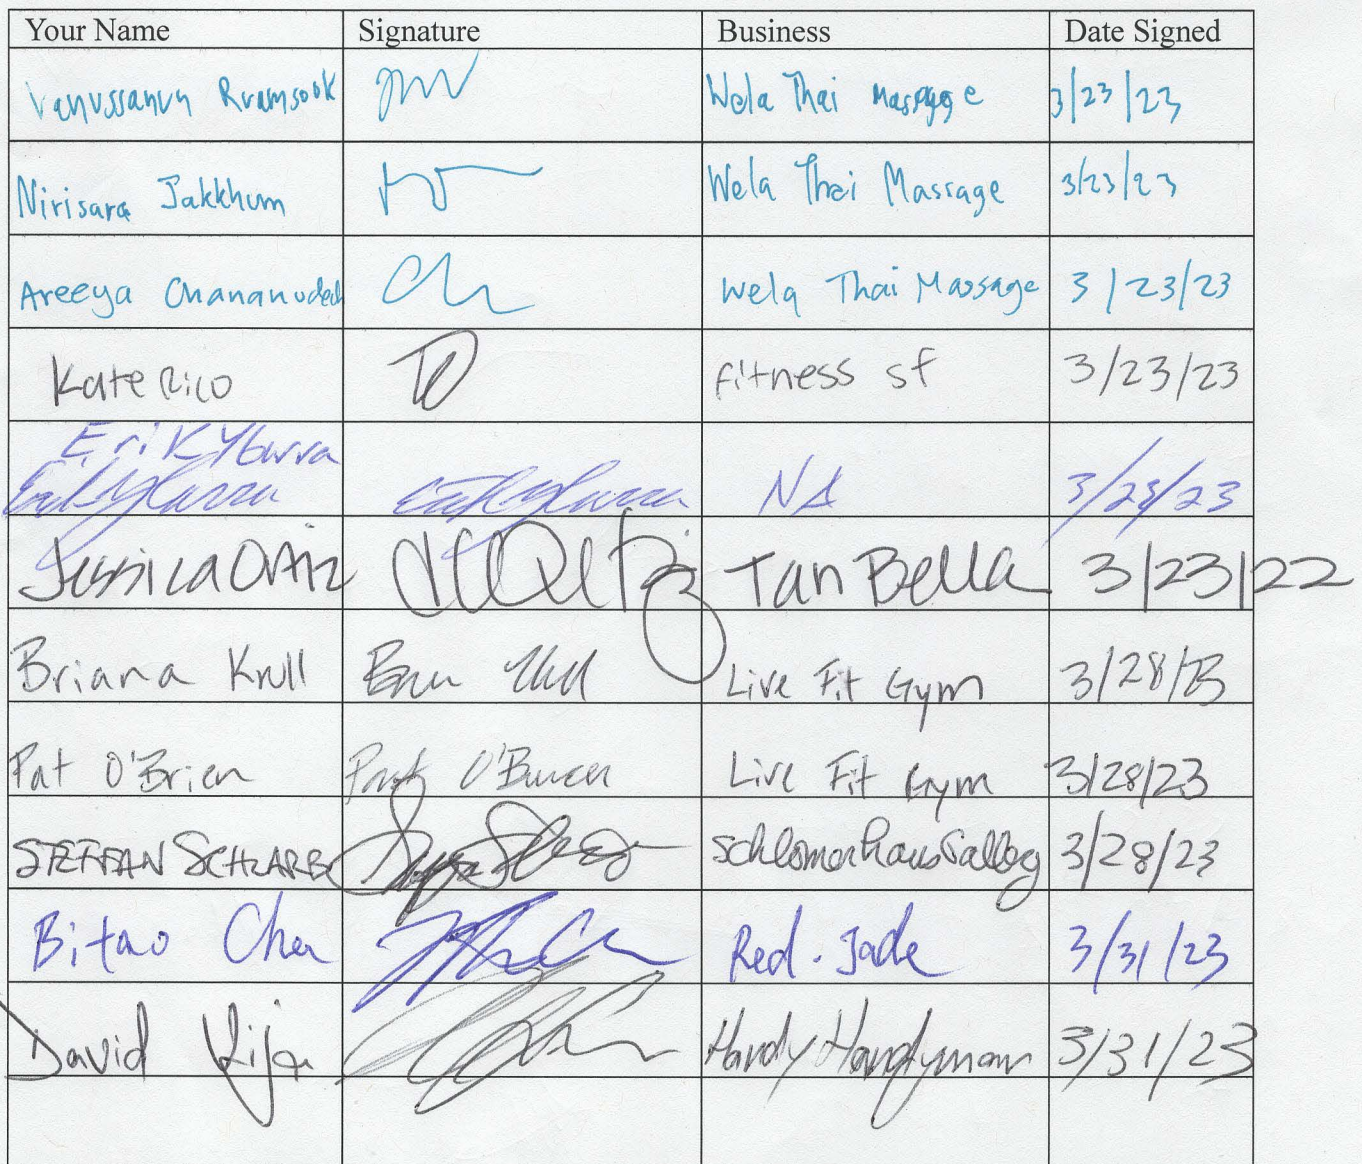 Your Name Signature Business Date Signed
Vanussanun Ruamsook Wela Thai Massage 3/23/23
Nirisara Jakkhum Wela Thai Massage 3/23/23
Areeya Chananudech Wela Thai Massage 3/23/23
Kate Rico fitness sf 3/23/23
Erik Ybarra
Erik Ybarra Erik Ybarra NA 3/23/23
Jessica Ortiz Tan Bella 3/23/22
Briana Krull Live Fit Gym 3/28/23
Pat O'Brien Pat O'Brien Live Fit Gym 3/28/23
STEFFAN SCHLARB Schlomer Haus Gallery 3/28/23
Bitao Chen Red Jade 3/31/23
David Handy Handyman 3/31/23